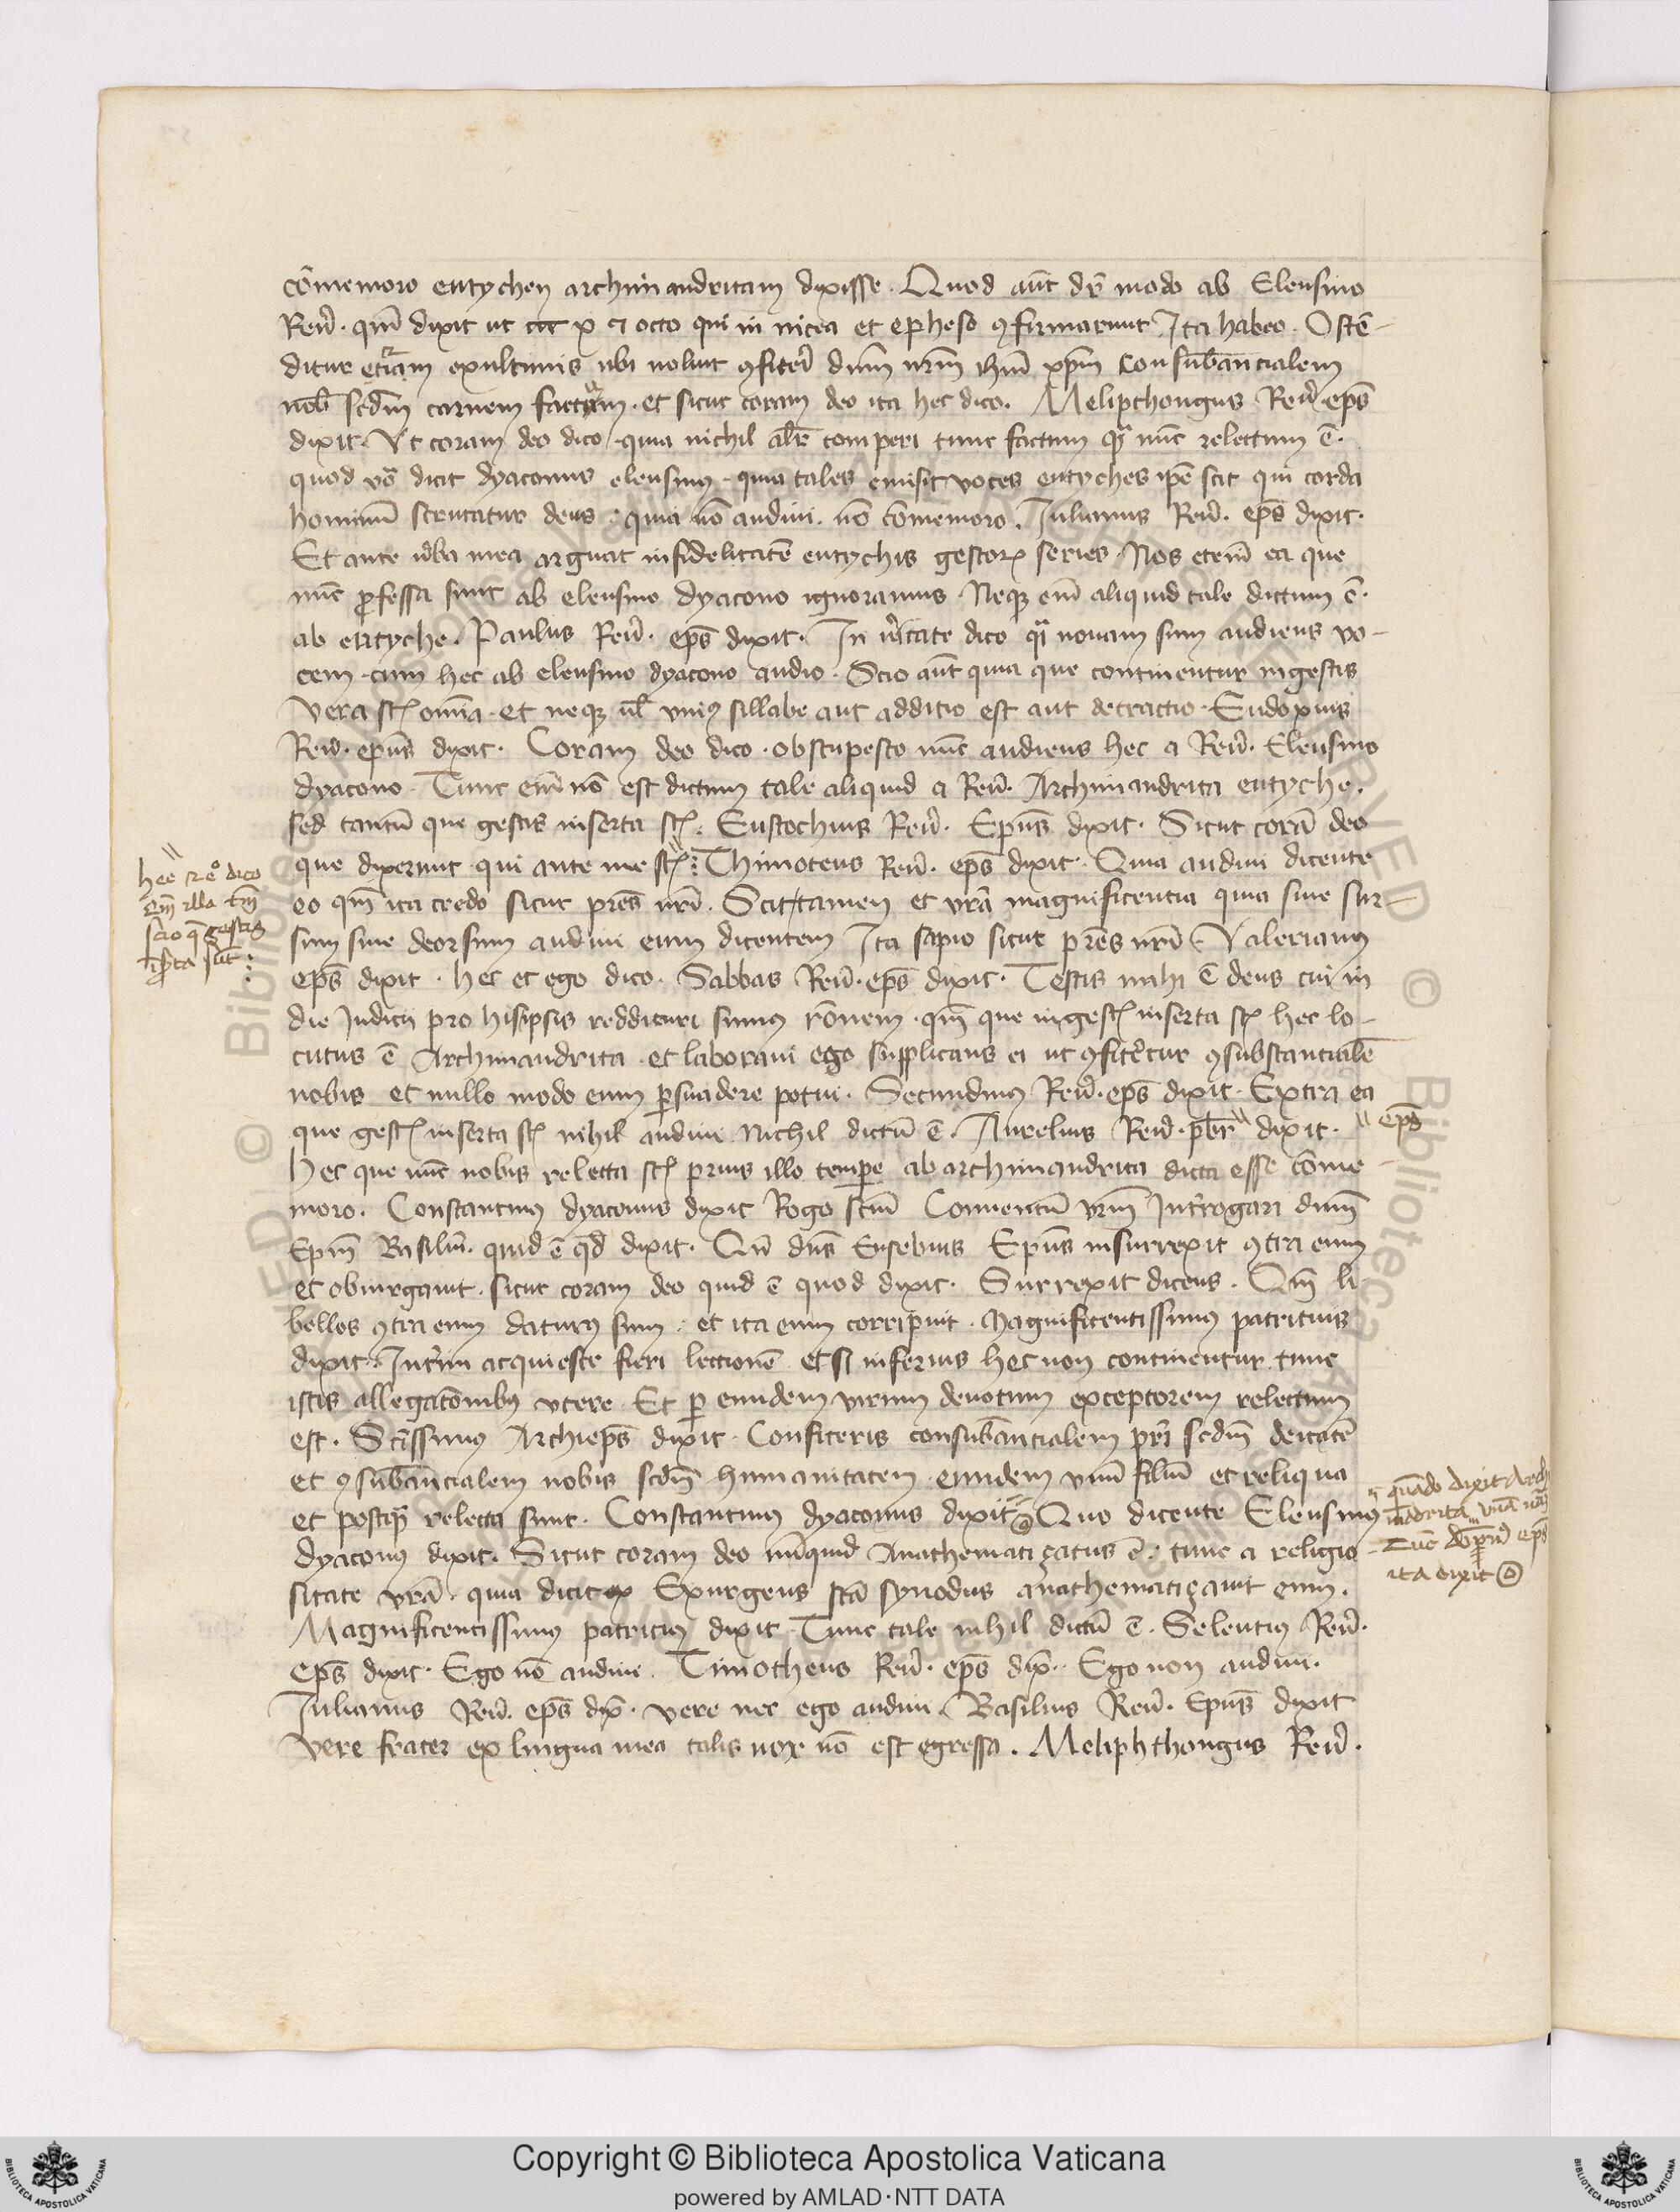 cõmemoro eutychen archimandritam dixisse. Quod aũt dr̃ modo ab Eleusino
Reũ. qm̃ dixit ut ccc x et octo qui in nicea et epheso ꝯfirmarunt Ita habeo. Ostẽ-
ditur etiam exultimis ubi noluit ꝯfiteri dñm nrm̃ ihm̃ xp̃m Consubstancialem
nob̃ scdm̃ carnem factam. et sicut coram deo ita hec dico. Melipthongus Reũ. ep̃s
dixit. Ut coram deo dico quia nichil alr̃ comperi tunc factum quã nũc relectum ẽ.
quod võ dicit dyaconus eleusinus. quia tales emisit voces eutyches ip̃e scit qui corda
hominũ scrutatur deus. quia nõ audiui. nõ cõmemoro. Julianus Reũ. ep̃s dixit.
Et ante ũba mea arguat infidelitatẽ eutychis gestoꝝ series. Nos etenĩ ea que
nũc ꝓfessa sunt ab eleusino dyacono ignoramus. Neqꝫ enĩ aliquid tale dictum ẽ.
ab eutyche. Paulus Reũ. ep̃s dixit. In ũitate dico qꝛ nouam sum audiens vo-
cem. cum hec ab eleusino dyacono audio. Scio aũt quia que continentur in gestis
Vera st̃ om̃ia. et neqꝫ ul̃ uniꝰ sillabe aut additio est aut detractio. Eudoxius
Reũ. epũs dixit. Coram deo dico. obstupesco nũc audiens hec a Reũ. Eleusino
dyacono. Tunc enĩ nõ est dictum tale aliquid a Reũ. Archimandrita eutyche.
sed tantũ que gestis inserta st̃. Eustochius Reũ. Epũs dixit. Sicut corã deo
que dixerunt qui ante me st̃: Thimoteus Reũ. ep̃s dixit. Quia audiui dicente
hec et ego dico
qm̃ illa tm̃
scio que gestis
inserta sũt:
eo qm̃ ita credo sicut pr̃es nr̃i. Scit tamen et vr̃a magnificentia quia siue sur-
sum siue deorsum audiui eum dicentem Ita sapio sicut pr̃es nr̃i. Valerianus
ep̃s dixit. hec et ego dico. Sabbas Reũ. ep̃s dixit. Testis mihi ẽ deus cui in
die Judicij pro hisipsis reddituri sumus rõnem. qm̃ que in gest̃ inserta st̃ hec lo-
cutus ẽ Archimandrita. et laboraui ego supplicans ei ut ꝯfiteretur ꝯsubstancialẽ
nobis et nullo modo eum ꝑsuadere potui. Secundinus Reũ. ep̃s dixit. Extra ea
que gest̃ inserta st̃ nihil audiui. Nichil dictũ ẽ. Aurelius Reũ. pbr̃ dixit. ep̃s
Hec que nũc nobis relecta st̃ prius illo tempe ab archimandrita dicta esse cõme-
moro. Constantinus dyaconus dixit Rogo scm̃ Conuentũ vrm̃ Interrogari dñm
Epm̃ Basiliũ. quid ẽ qd̃ dixit. Qũ dñs Eusebius Epũs insurrexit ꝯtra eum
et obiurgauit. sicut coram deo quid ẽ quod dixit. Surrexit dicens. Qm̃ li-
bellos ꝯtra eum daturꝰ sum. et ita eum corripuit. Magnificentissimus patritius
dixit. Interim acquiesce fieri lectionẽ. et si inferius hec non continentur tunc
istis allegatõnibꝰ utere. Et ꝑ eundem virum deuotum exceptorem relectum
est. Sc̃issimus Archiep̃s dixit. Confiteris consubstancialem pr̃i scdm̃ deitatẽ
et ꝯsubstancialem nobis scdm̃ humanitatem. eundem unũ filiũ et reliqua
et postꝙ̃ relecta sunt. Constantinus dyaconus dixit Quo dicente Eleusinus
quãdo dixit Archi
madrita unã nãm
tũc dõ prm̃ ep̃s
ita dixit
dyaconus dixit. Sicut coram deo nũquid Anathematiçatus ẽ. tunc a religio-
sitate vr̃a. quia dicit Exurgens sc̃a synodus anathematiçauit eum.
Magnificentissimus patritius dixit. Tunc tale nihil dictũ ẽ. Seleutius Reũ.
ep̃s dixit. Ego nõ audiui. Timotheus Reũ. ep̃s dix̃. Ego non audiui.
Julianus Reũ. ep̃s dix̃. vere nec ego audiui. Basilius Reũ. Epũs dixit
Vere frater ex lingua mea talis uox nõ est egressa. Meliphthongus Reũ.
Copyright © Biblioteca Apostolica Vaticana
powered by AMLAD·NTT DATA